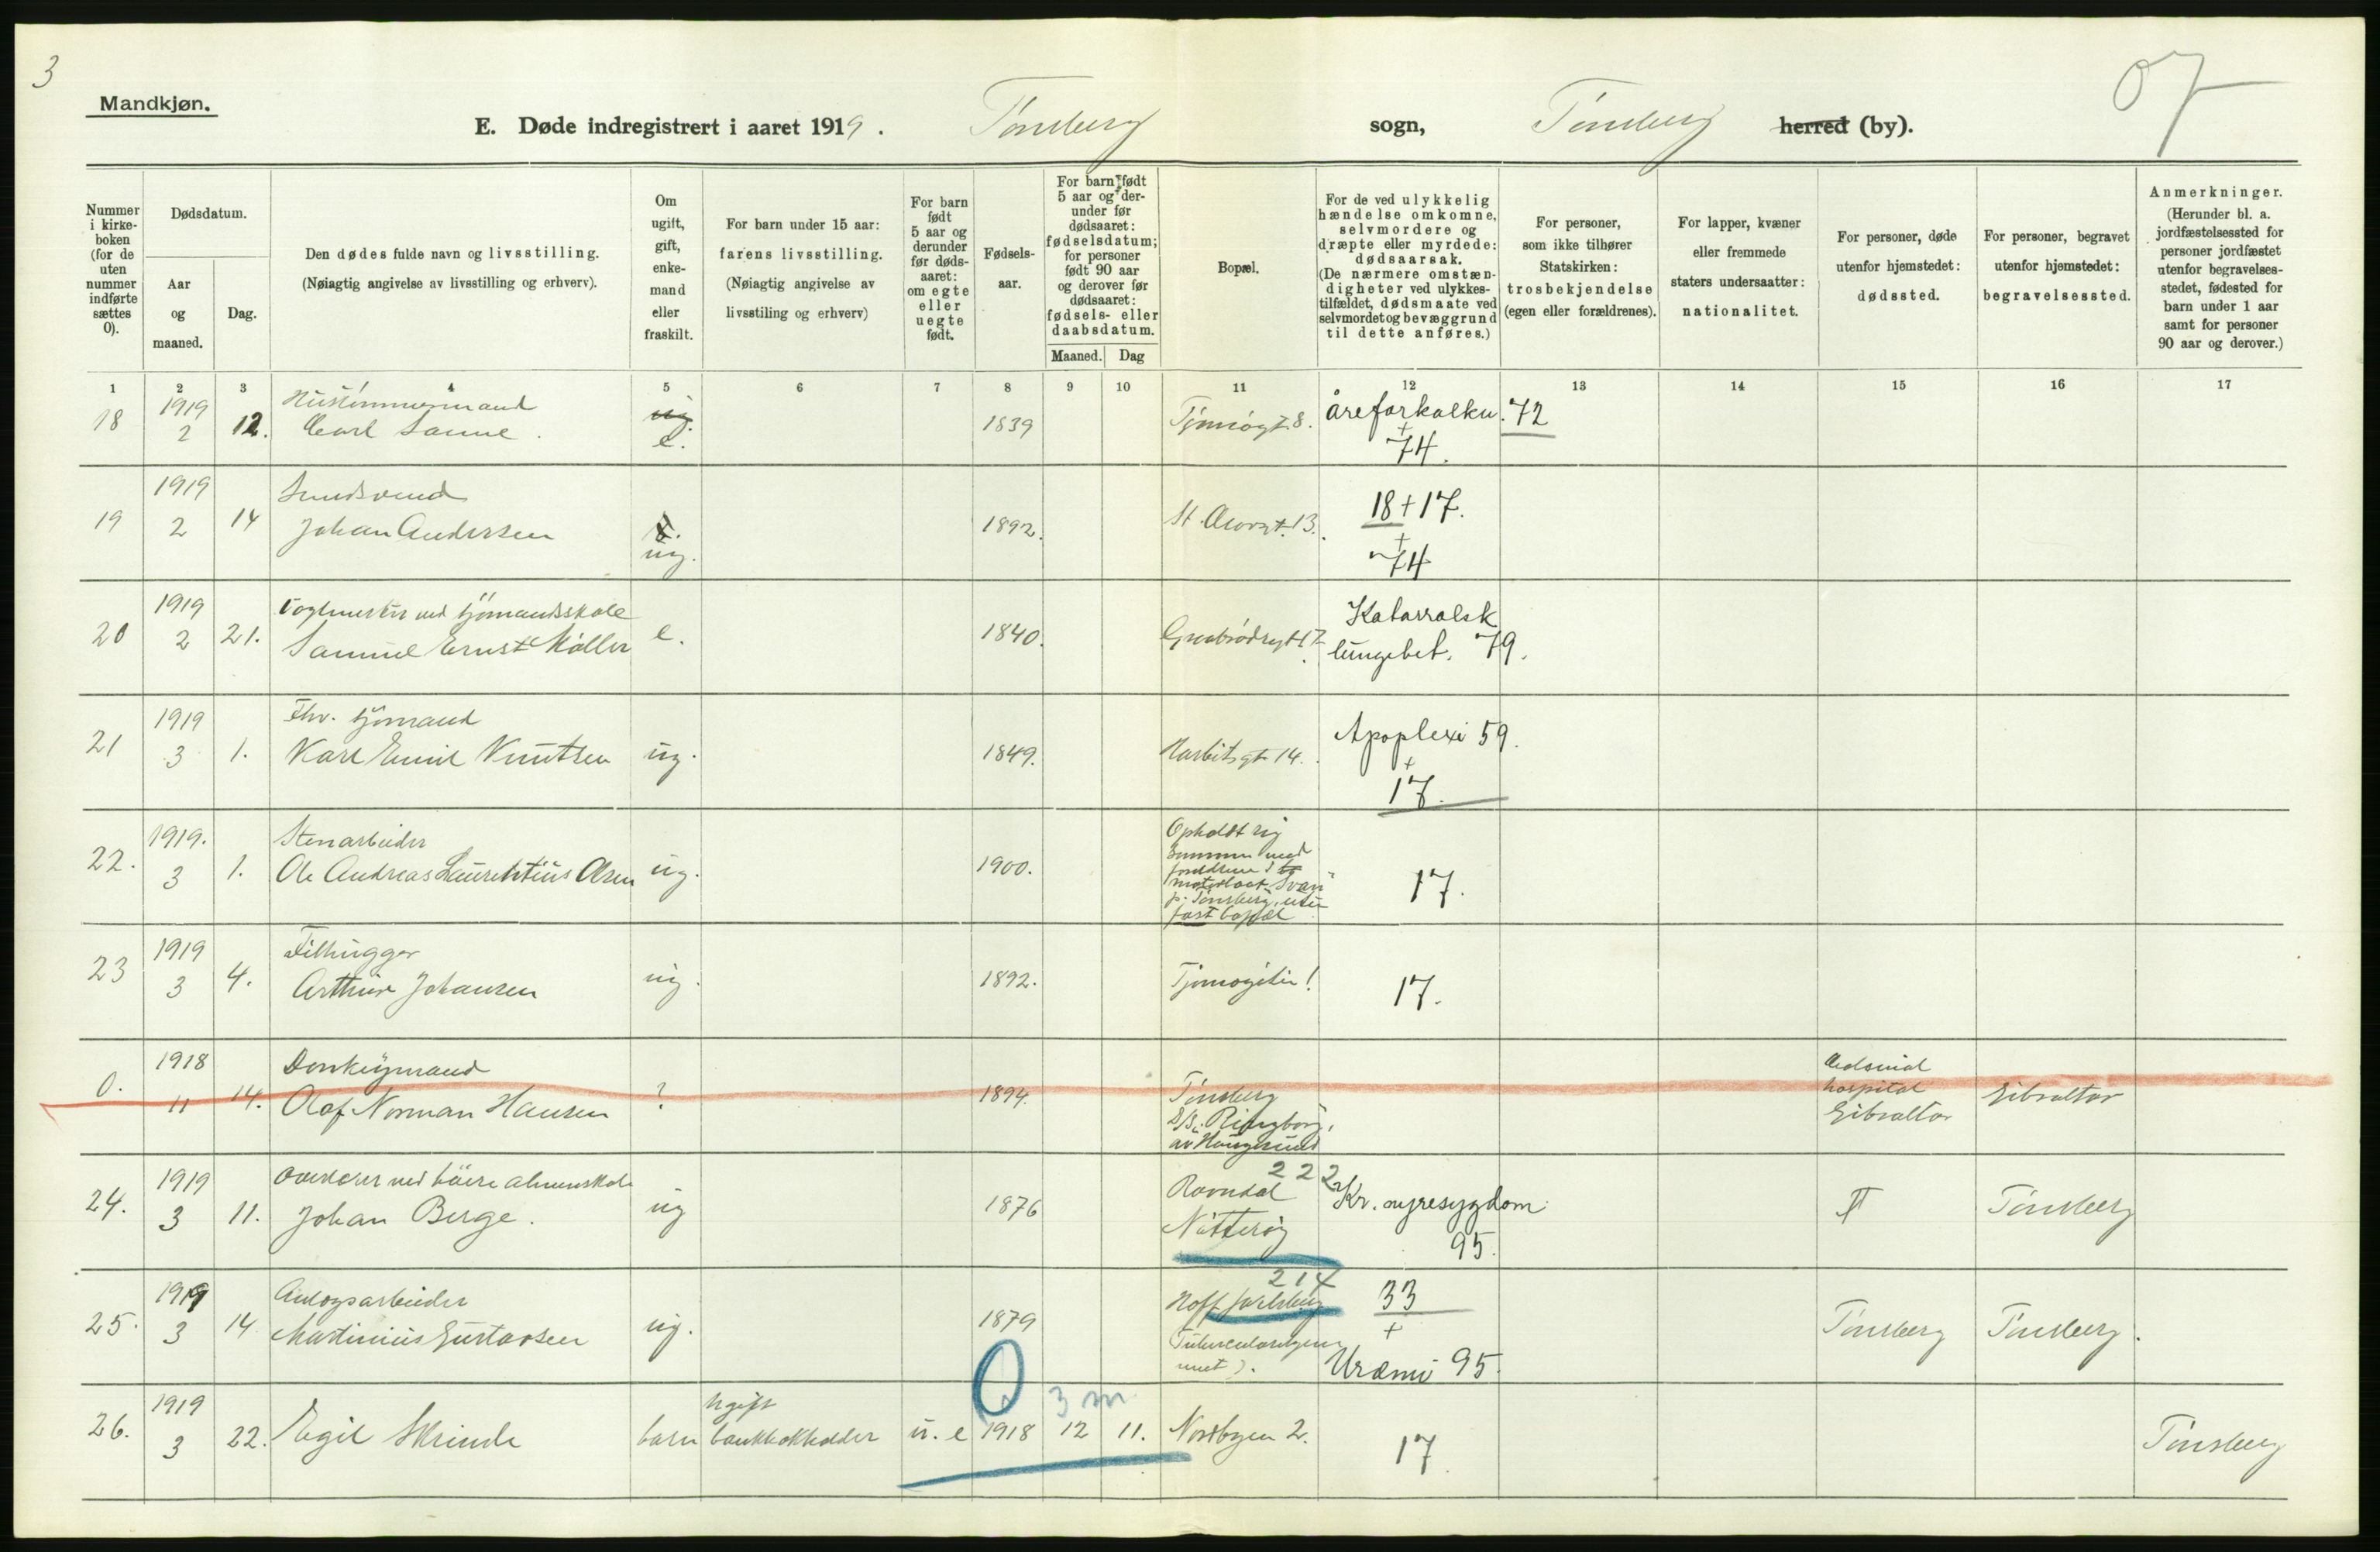 3
Mandkjøn.
E. Døde indregistrert i aaret 1919. Tønsberg sogn, Tønsberg herred (by).
07
Nummer i kirke-boken (for de uten nummer indførte sættes 0).
Dødsdatum.
Aar og maaned.
Dag.
Den dødes fulde navn og livsstilling.
(Nøiagtig angivelse av livsstilling og erhverv).
Om ugift, gift, enke-mand eller fraskilt.
For barn under 15 aar: farens livsstilling.
(Nøiagtig angivelse av livsstiling og erhverv)
For barn født 5 aar og derunder før døds-aaret: om egte eller uegte født.
Fødsels-aar.
For barn født 5 aar og der-under før dødsaaret: fødselsdatum; for personer født 90 aar og derover før dødsaaret: fødsels- eller daabsdatum.
Maaned. Dag
Bopæl.
For de ved ulykkelig hændelse omkomne, selvmordere og dræpte eller myrdede: dødsaarsak.
(De nærmere omstæn-digheter ved ulykkes-tilfældet, dødsmaate ved selvmordet og bevæggrund til dette anføres.)
For personer, som ikke tilhører Statskirken: trosbekjendelse (egen eller forældrenes).
For lapper, kvæner eller fremmede staters undersaatter: nationalitet.
For personer, døde utenfor hjemstedet: dødssted.
For personer, begravet utenfor hjemstedet: begravelsessted.
Anmerkninger.
(Herunder bl. a. jordfæstelsessted for personer jordfæstet utenfor begravelses-stedet, fødested for barn under 1 aar samt for personer 90 aar og derover.)
1 2 3 4 5 6 7 8 9 10 11 12 13 14 15 16 17
18 1919 2 12. Hustømmermand
Carl Sanne. ug. e. 1839 Tjømøgt. 8. åreforkalkn. 72
+
74.
19 1919 2 14
Johan Andersen ug. 1892. 13. 18+17.
+
74
20 1919 2 21. ved sjømandsskole
Samuel Ernst Møller e. 1840. 17 Katarralsk
lungebet. 79.
21 1919 3 1. Fhv. sjømand
Karl Emil Knutsen ug. 1849. Narbitsgt 14. Apoplexi 59.
+
17.
22. 1919. 3 1. Stenarbeider
Ole Andreas Laurentius Olsen ug. 1900. Opholdt sig
sammen med
forældrene i
motorbaat "Svan"
p. Tønsberg, uten
fast bopæl 17.
23 1919 3 4. Filhugger
Arthur Johansen ug. 1892. 17.
0. 1918 11 14. Donkeymand
Olaf Norman Hansen ? 1894. Tønsberg
S/S. Ringborg,
av Haugesund
Colonial
hospital
Gibraltar Gibraltar
24. 1919 3 11. Overlærer ved høiere almenskole
Johan Berge. ug 1876 222
Ramdal
Nøtterøy Kr. nyresygdom
95. T Tønsberg
25. 1919 3 14 Anlægsarbeider
Martinius Gustavsen ug. 1879 214
Hoff Jarlsberg 33
+
Uræmi 95. Tønsberg Tønsberg.
26. 1919 3 22. Egil Skrinde barn Ugift
bankbokholder u. e 1918 12 11. 0 3 m Nordbyen 2. 17. Tønsberg